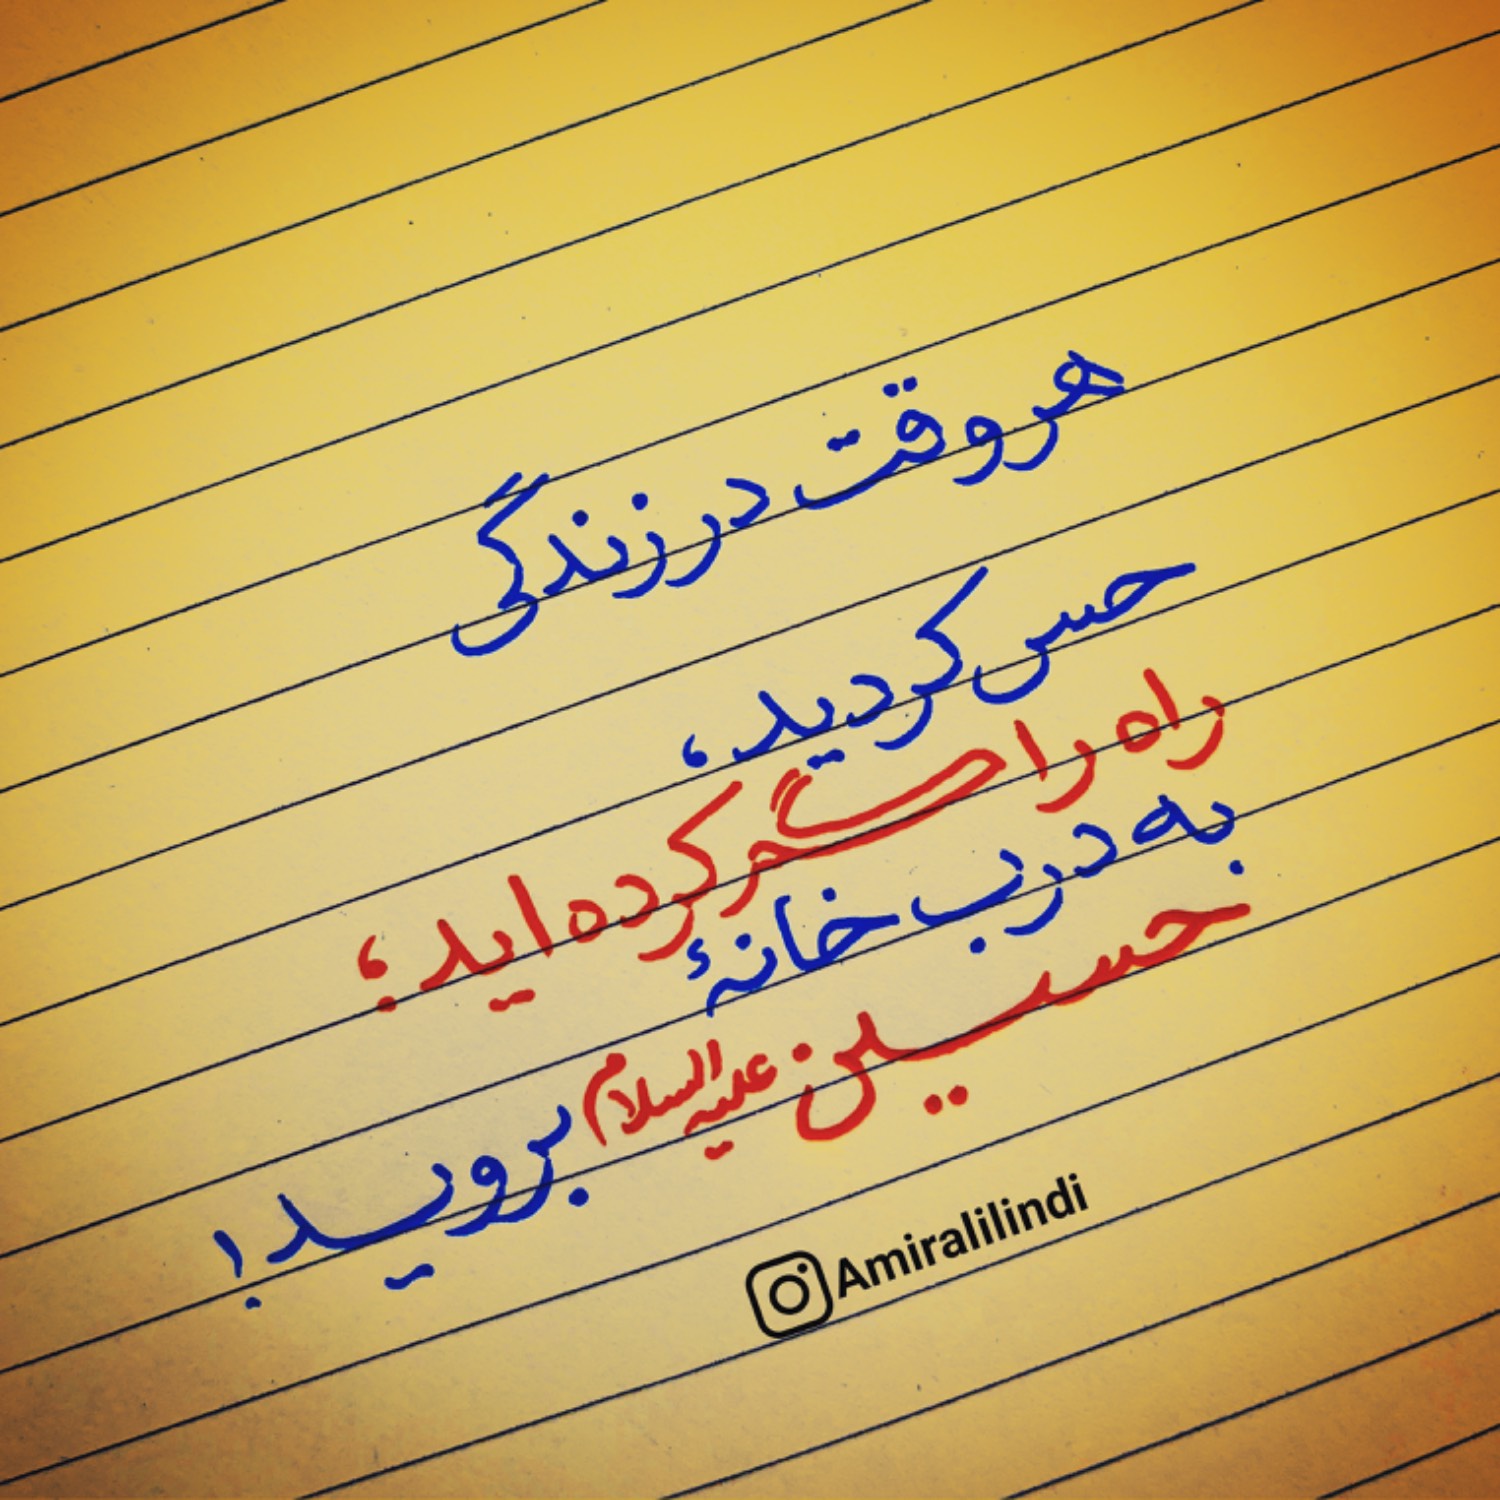 هر وقت در زندگی
حس کردید،
راه را گم کرده اید؛
به درب خانهٔ
حسین علیه السلام بروید!
Amiralilindi